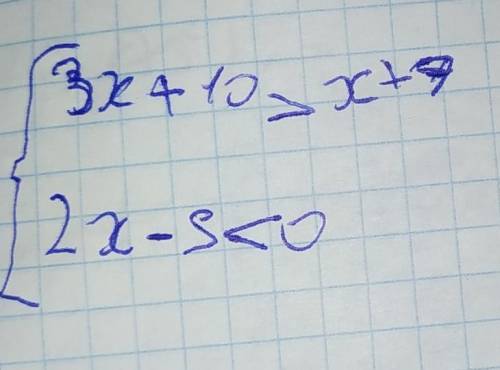 3x + 10 > x + 7
2x - 5 < 0